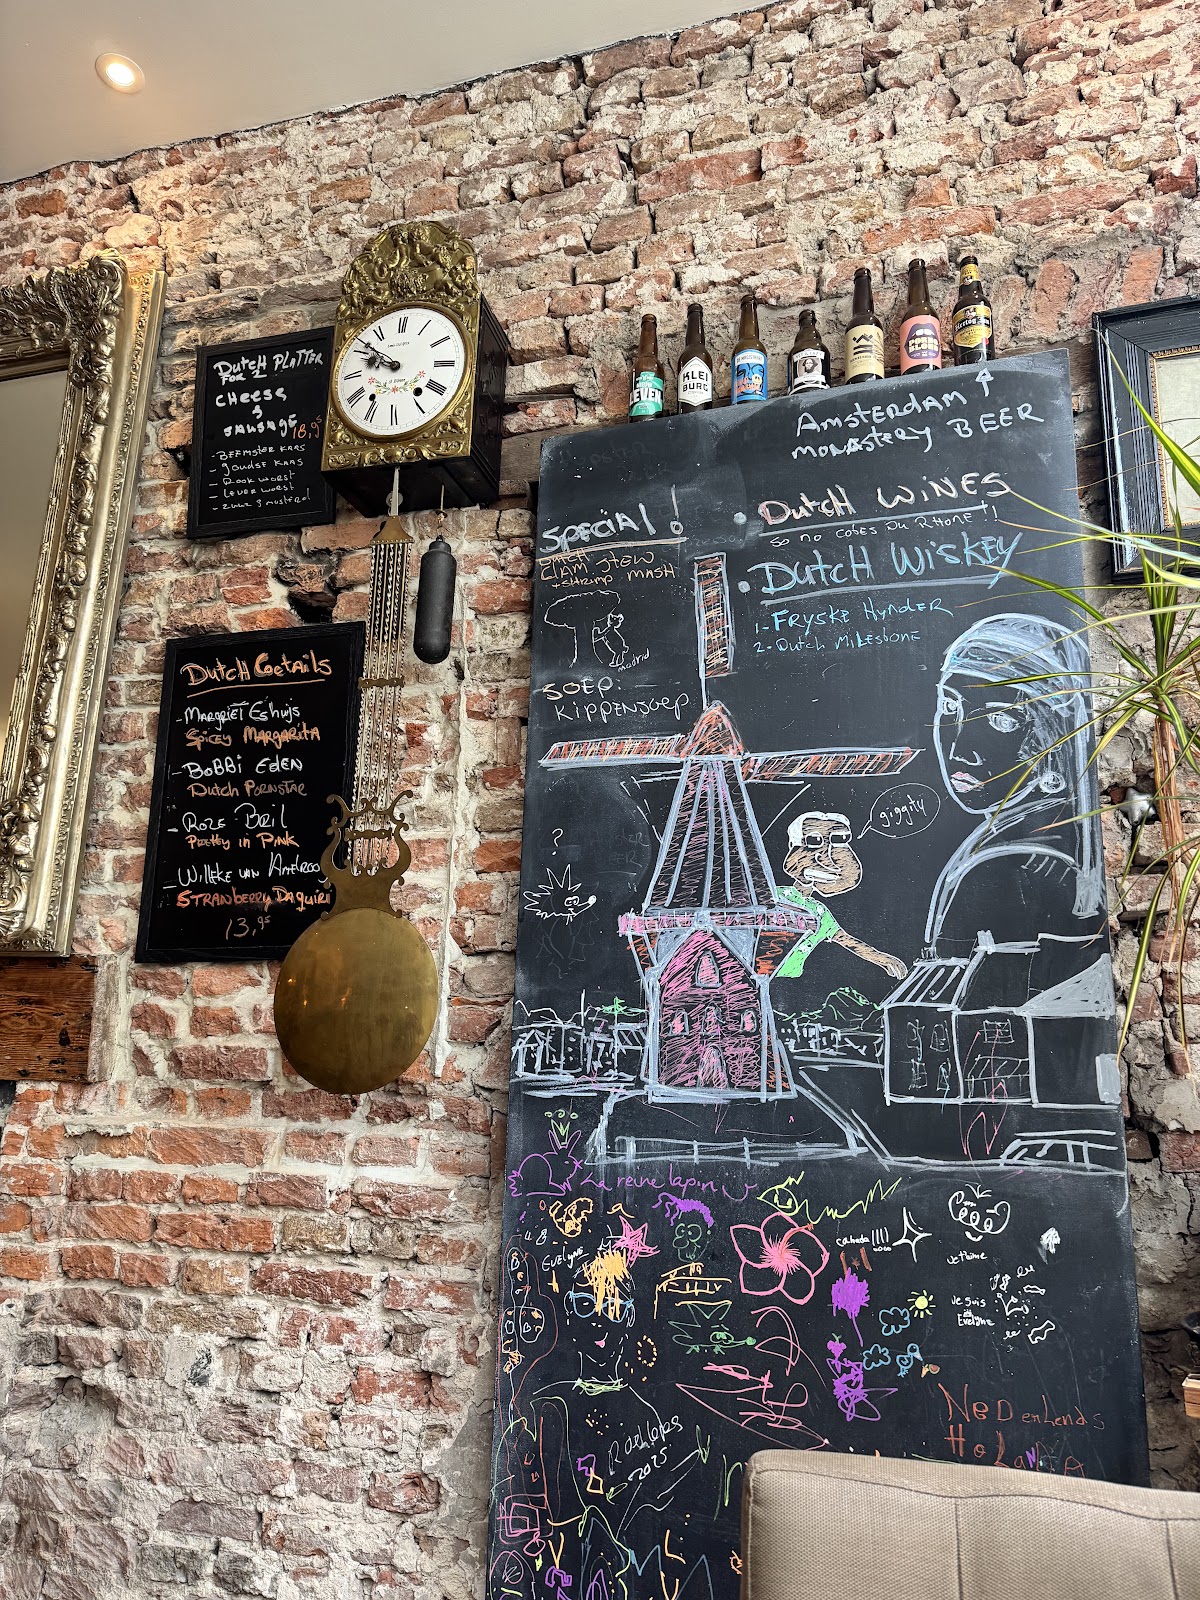 DUTCH PLATTER
FOR 2
CHEESE
&
SAUSAGE 18,95
- BEEMSTER KAAS
- GOUDSE KAAS
- ROOK WORST
- LEVER WORST
- ZUUR & MUSTERD
Dutch Coctails
- MARGRIET ESHUIJS
SPICEY MARGARITA
- BOBBI EDEN
DUTCH PORNSTAR
- ROZE BRIL
PRETTY IN PINK
- WILLEKE VAN AMMEROO
STRAWBERRY DAQUIRI
13,95
KLEI
BURG
Hertog Jan
AMSTERDAM
MONASTERY BEER
SPECIAL!
DUTCH
CLAM STEW
+ SHRIMP MASH
madrid
SOEP:
KIPPENSOEP
• DUTCH WINES
SO NO COTES DU RHONE!!
• DUTCH WISKEY
1- FRYSKE HYNDER
2- DUTCH MILESTONE
giggity
?
La reine lapin
EVELYNE
canada
Je t'aime
Je suis
Evelyne
2025
NEDerlands
HoLaND